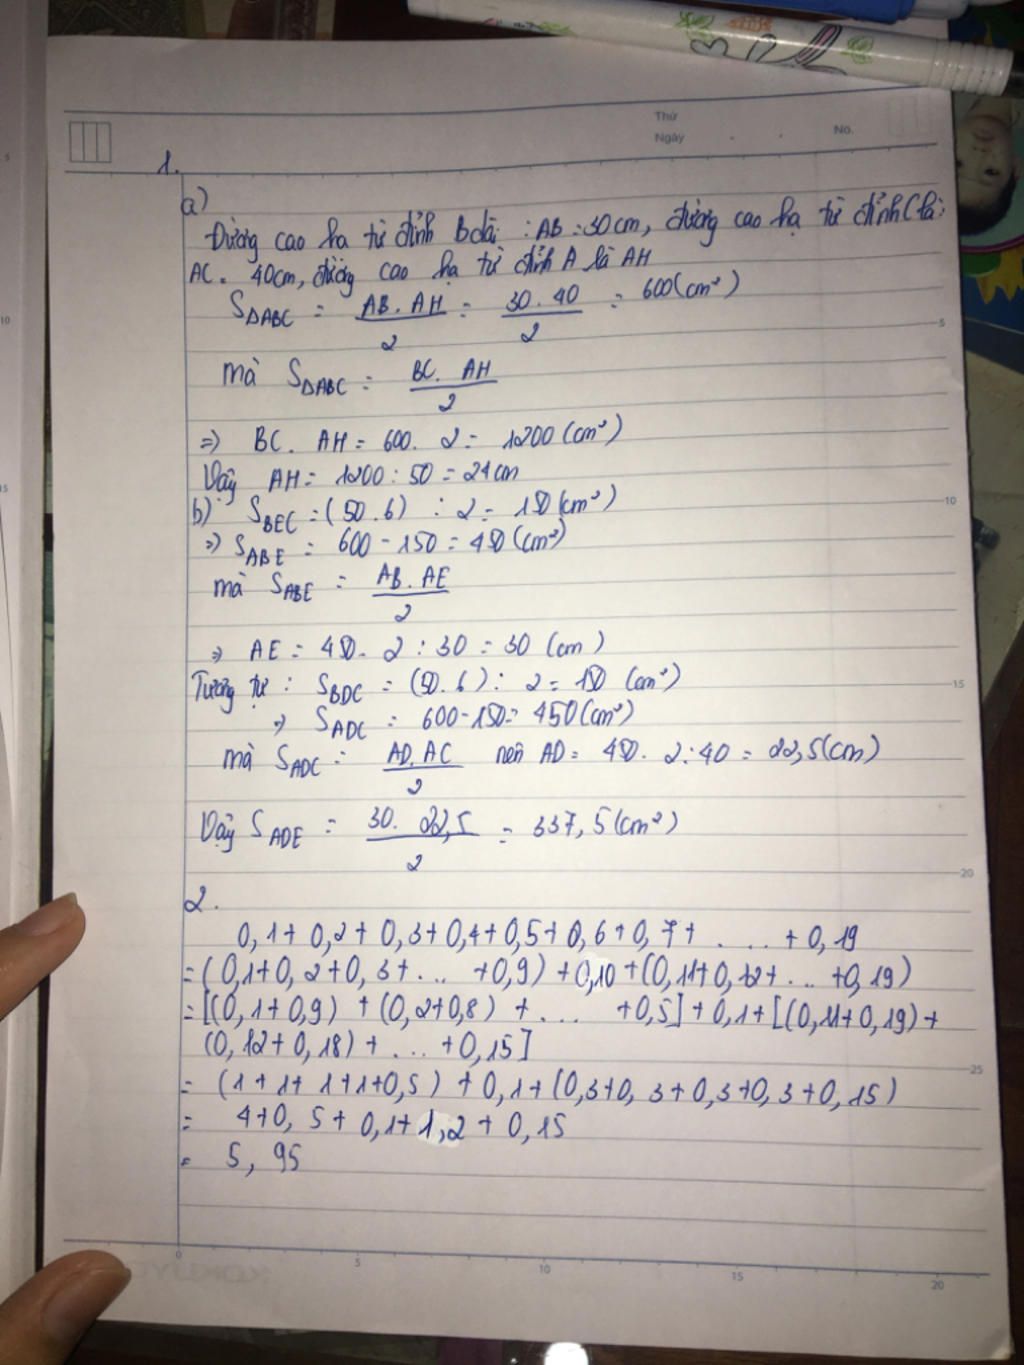 Thứ
Ngày . . No.
1.
a)
Đường cao hạ từ đỉnh B dài : AB = 30 cm, đường cao hạ từ đỉnh C là:
AC = 40cm, đường cao hạ từ đỉnh A là AH
SΔABC = AB. AH / 2 = 30. 40 / 2 = 600 (cm²)
mà SΔABC = BC. AH / 2
=> BC. AH = 600. 2 = 1200 (cm²)
Vậy AH = 1200 : 50 = 24 cm
b) SBEC = (50.6) : 2 = 150 (cm²)
=> SABE = 600 - 150 = 450 (cm²)
mà SABE = AB. AE / 2
=> AE = 450. 2 : 30 = 30 (cm)
Tương tự : SBDC = (50.6) : 2 = 150 (cm²)
=> SADC = 600 - 150 = 450 (cm²)
mà SADC = AD. AC / 2 nên AD = 450. 2 : 40 = 22,5 (cm)
Vậy SADE = 30. 22,5 / 2 = 337,5 (cm²)
2.
0,1 + 0,2 + 0,3 + 0,4 + 0,5 + 0,6 + 0,7 + .... + 0,19
= (0,1 + 0,2 + 0,3 + ... + 0,9) + 0,10 + (0,11 + 0,12 + ... + 0,19)
= [(0,1 + 0,9) + (0,2 + 0,8) + .... + 0,5] + 0,1 + [(0,11 + 0,19) +
(0,12 + 0,18) + ... + 0,15]
= (1 + 1 + 1 + 1 + 0,5) + 0,1 + (0,3 + 0,3 + 0,3 + 0,3 + 0,15)
= 4 + 0,5 + 0,1 + 1,2 + 0,15
= 5,95
0 5 10 15 20